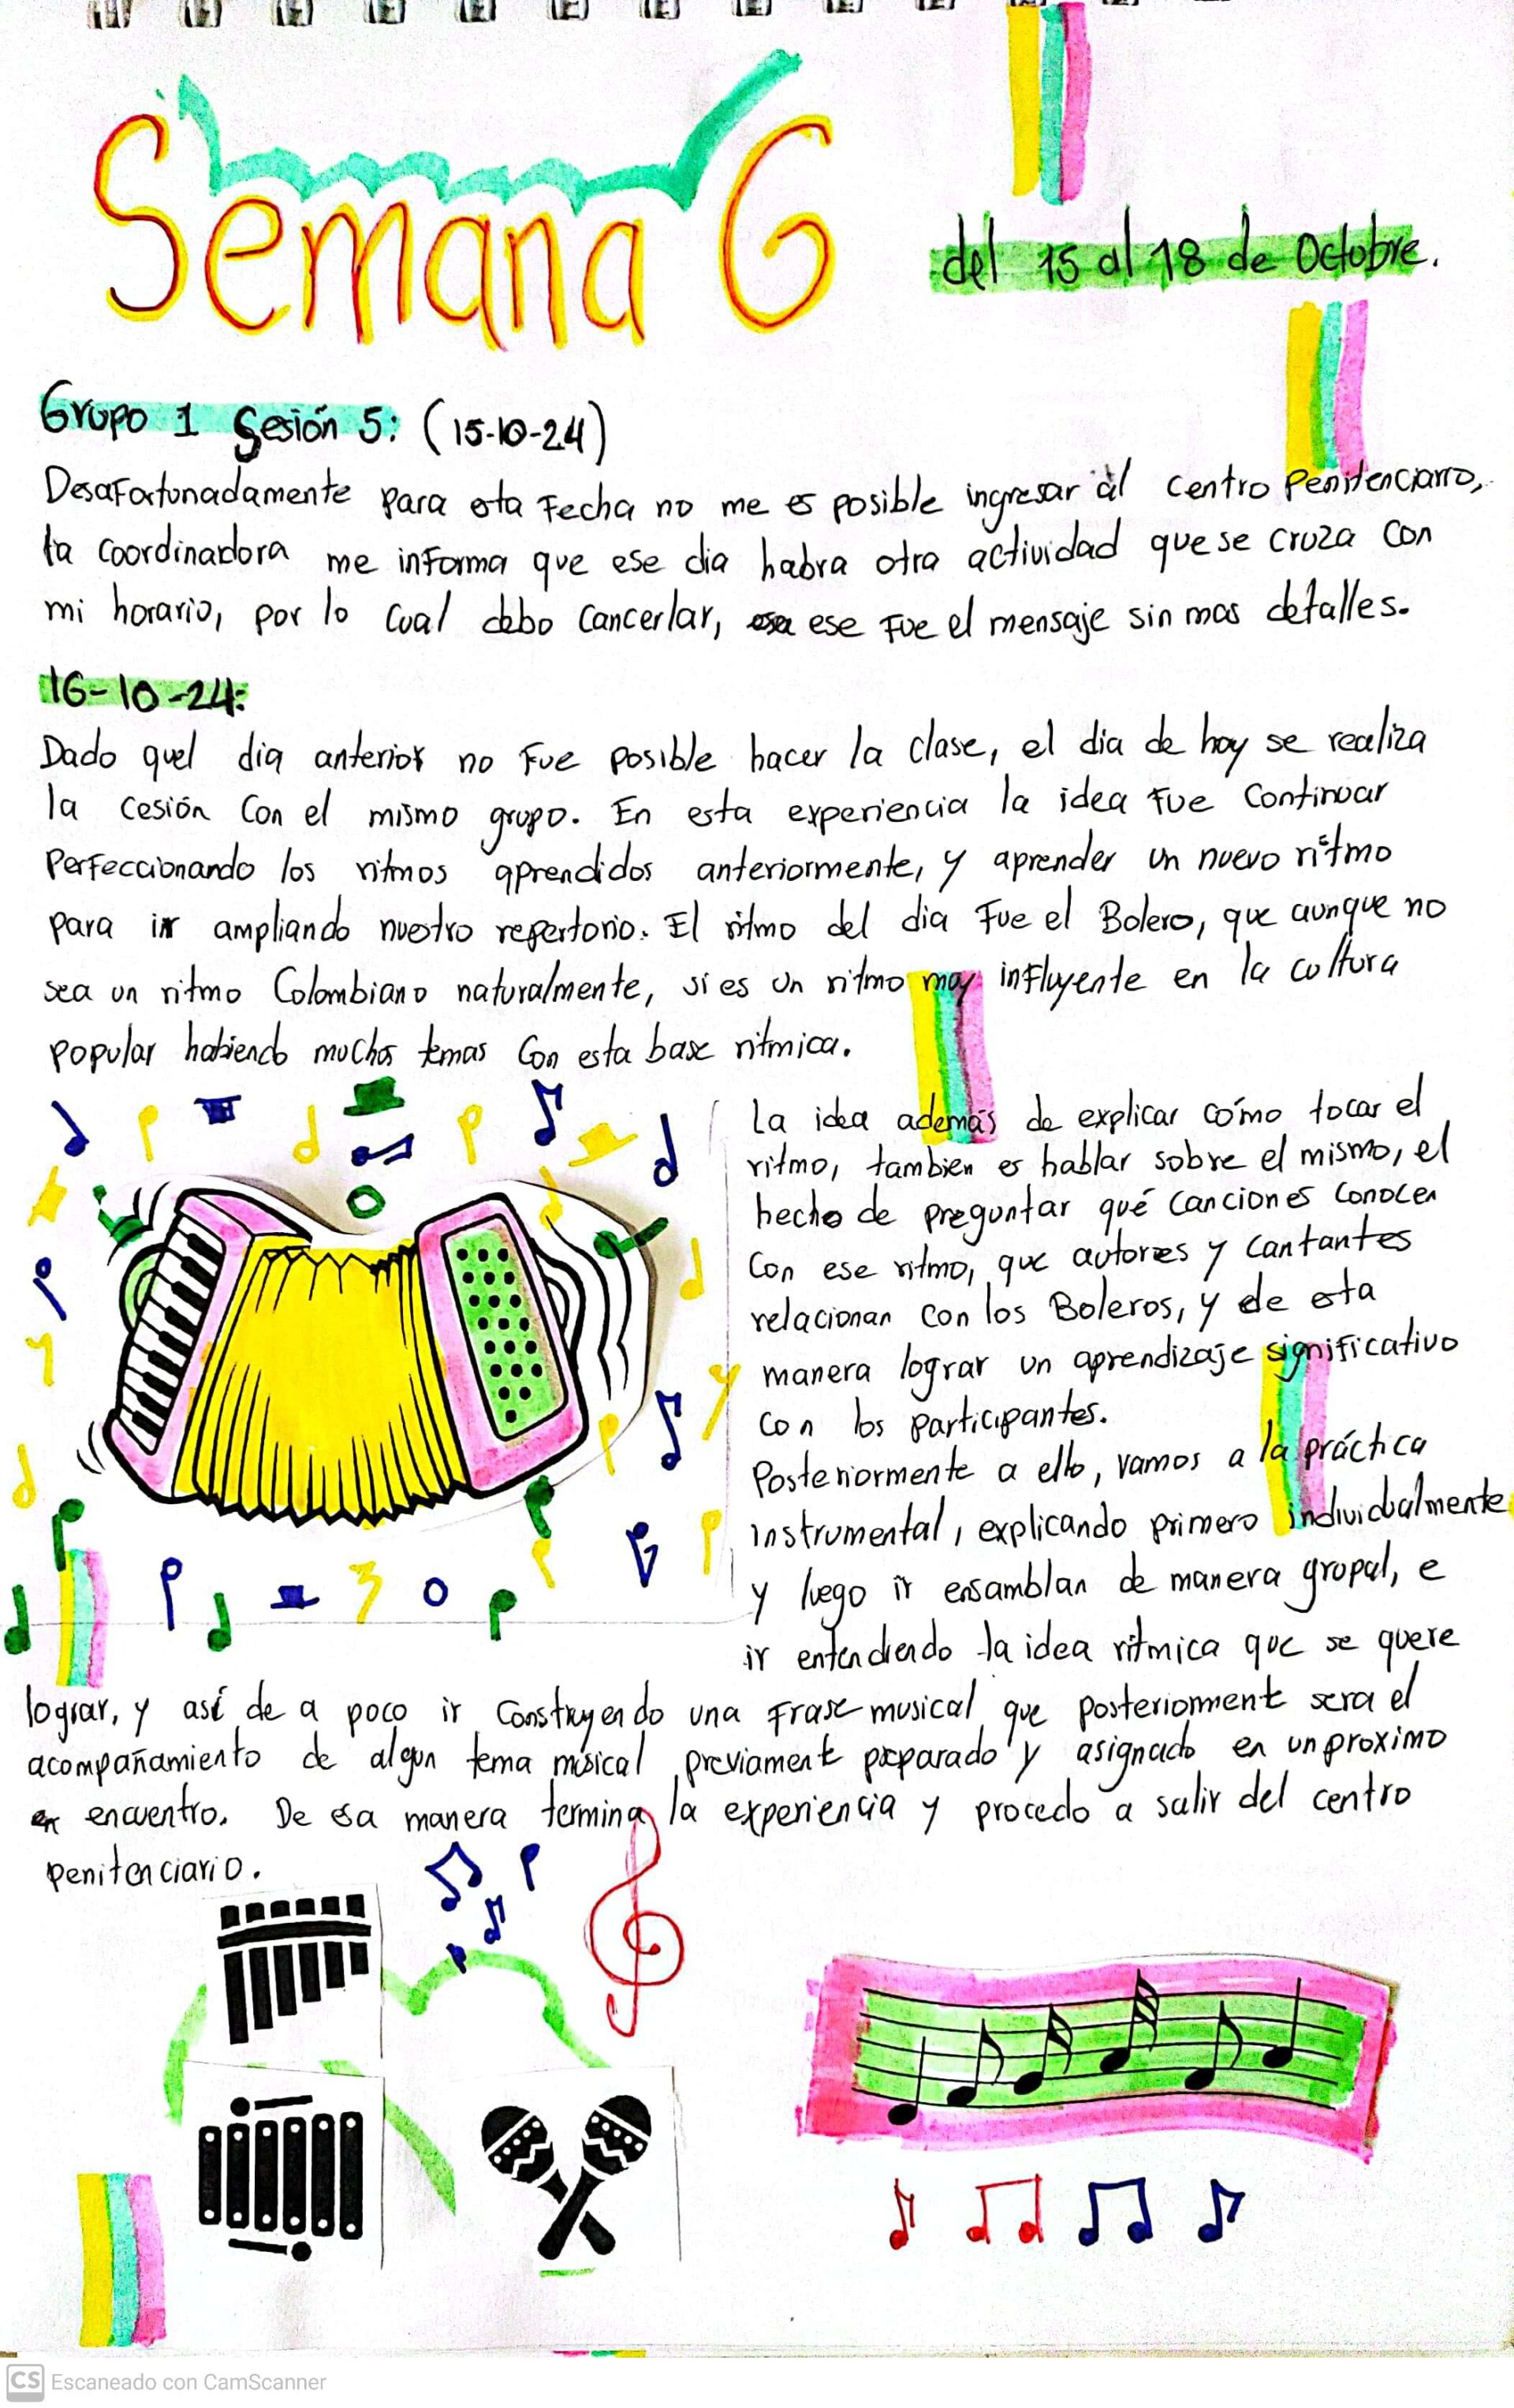 Semana 6
del 15 al 18 de Octubre.
Grupo 1 Sesión 5: (15-10-24)
Desafortunadamente para esta Fecha no me es posible ingresar al centro Penitenciario,
la coordinadora me informa que ese dia habra otra actividad que se cruza con
mi horario, por lo cual debo cancerlar, ese fue el mensaje sin mas detalles.
16-10-24:
Dado quel dia anterior no fue posible hacer la clase, el dia de hoy se realiza
la cesión con el mismo grupo. En esta experiencia la idea fue continuar
Perfeccionando los ritmos aprendidos anteriormente, y aprender un nuevo ritmo
para ir ampliando nuestro repertorio. El ritmo del dia fue el Bolero, que aunque no
sea un ritmo Colombiano naturalmente, sí es un ritmo muy influyente en la cultura
popular habiendo muchos temas con esta base ritmica.
La idea además de explicar cómo tocar el
ritmo, tambien es hablar sobre el mismo, el
hecho de preguntar qué canciones conocen
con ese ritmo, que autores y cantantes
relacionan con los Boleros, y de esta
manera lograr un aprendizaje significativo
con los participantes.
Posteriormente a ello, vamos a la práctica
instrumental, explicando primero individualmente
y luego ir ensamblan de manera grupal, e
ir entendiendo la idea ritmica que se quere
lograr, y así de a poco ir construyendo una frase musical que posteriormente sera el
acompañamiento de algun tema músical previamente preparado y asignado en un proximo
encuentro. De esa manera termina la experiencia y procedo a salir del centro
penitenciario.
CS Escaneado con CamScanner